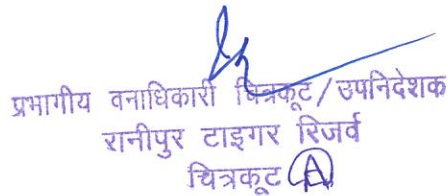 प्रभागीय वनाधिकारी चित्रकूट/उपनिदेशक
रानीपुर टाइगर रिजर्व
चित्रकूट Ⓐ